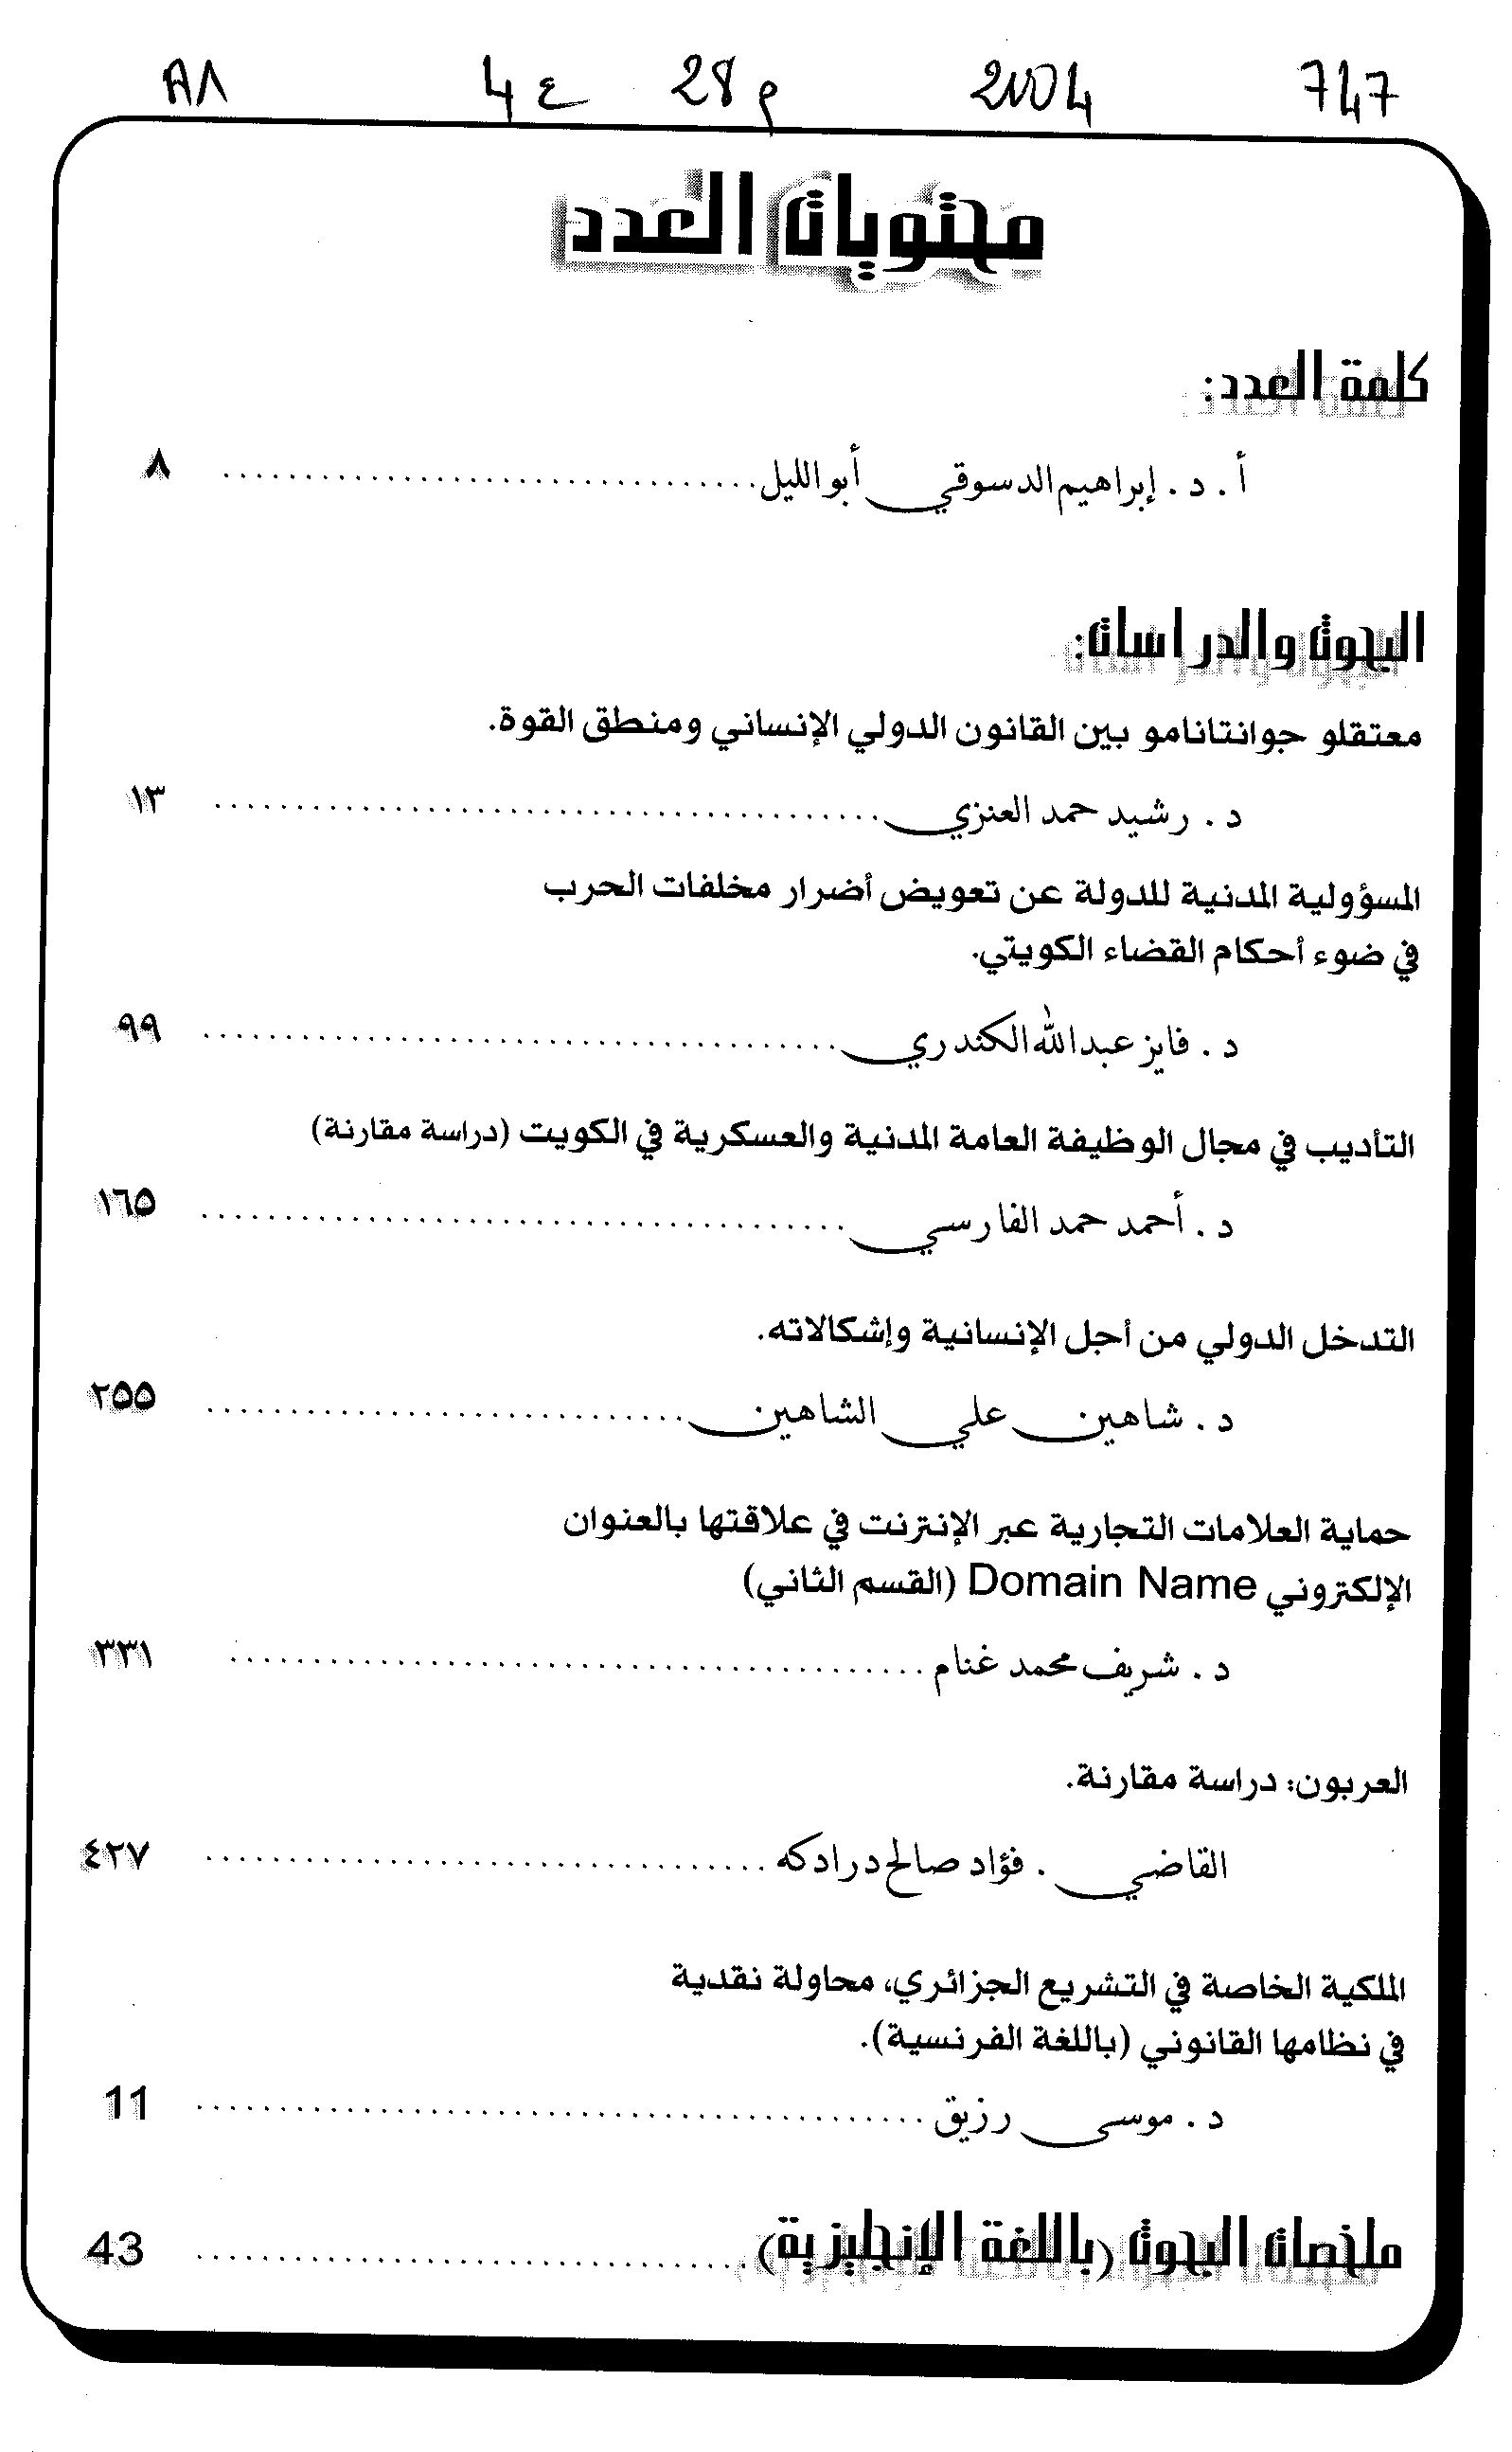 747 2004 م 28 ع 4 A٨
محتويات العدد
كلمة العدد:
أ . د . إبراهيم الدسوقي أبو الليل ........ ٨
البحوث والدراسات:
معتقلو جوانتانامو بين القانون الدولي الإنساني ومنطق القوة.
د . رشيد حمد العنزي ........ ١٣
المسؤولية المدنية للدولة عن تعويض أضرار مخلفات الحرب
في ضوء أحكام القضاء الكويتي.
د . فايز عبدالله الكندري ........ ٩٩
التأديب في مجال الوظيفة العامة المدنية والعسكرية في الكويت (دراسة مقارنة)
د . أحمد حمد الفارسي ........ ١٦٥
التدخل الدولي من أجل الإنسانية وإشكالاته.
د . شاهين علي الشاهين ........ ٢٥٥
حماية العلامات التجارية عبر الإنترنت في علاقتها بالعنوان
الإلكتروني Domain Name (القسم الثاني)
د . شريف محمد غنام ........ ٣٣١
العربون: دراسة مقارنة.
القاضي . فؤاد صالح درادكه ........ ٤٢٧
الملكية الخاصة في التشريع الجزائري، محاولة نقدية
في نظامها القانوني (باللغة الفرنسية).
د . موسى رزيق ........ 11
ملخصات البحوث (باللغة الإنجليزية) ........ 43